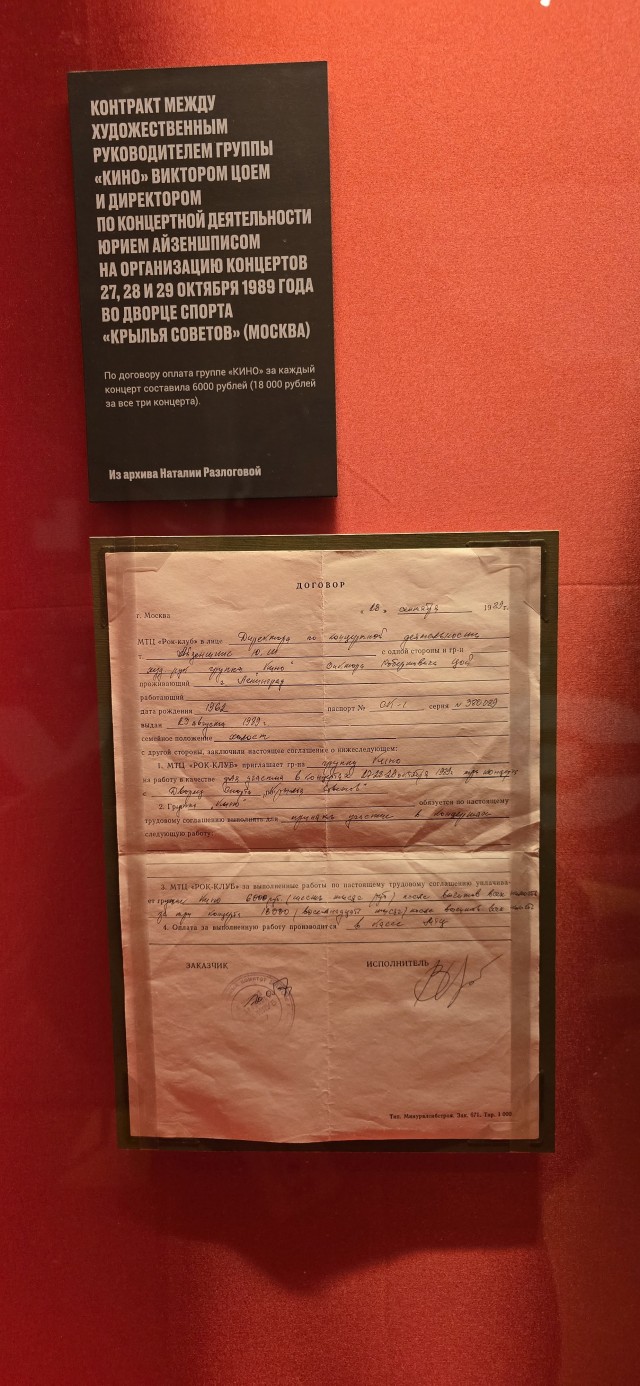 КОНТРАКТ МЕЖДУ
ХУДОЖЕСТВЕННЫМ
РУКОВОДИТЕЛЕМ ГРУППЫ
«КИНО» ВИКТОРОМ ЦОЕМ
И ДИРЕКТОРОМ
ПО КОНЦЕРТНОЙ ДЕЯТЕЛЬНОСТИ
ЮРИЕМ АЙЗЕНШПИСОМ
НА ОРГАНИЗАЦИЮ КОНЦЕРТОВ
27, 28 И 29 ОКТЯБРЯ 1989 ГОДА
ВО ДВОРЦЕ СПОРТА
«КРЫЛЬЯ СОВЕТОВ» (МОСКВА)
По договору оплата группе «КИНО» за каждый
концерт составила 6000 рублей (18 000 рублей
за все три концерта).
Из архива Наталии Разлоговой
ДОГОВОР
г. Москва сентября 1989г.
МТЦ «Рок-клуб» в лице Директора по концертной деятельности
Айзеншпис Ю. Ш с одной стороны и гр-н
худ. рук группы "Кино" Виктора Робертовича Цой
проживающий г. Ленинград
работающий
дата рождения 1962 паспорт № серия
выдан
семейное положение холост
с другой стороны, заключили настоящее соглашение о нижеследующем:
1. МТЦ «РОК-КЛУБ» приглашает гр-на группу Кино
на работу в качестве для участия в концертах октября
Дворца Спорта "Крылья Советов"
2. Группа "Кино" обязуется по настоящему
трудовому соглашению выполнить для принять участие в концертах
следующую работу:
3. МТЦ «РОК-КЛУБ» за выполненные работы по настоящему трудовому соглашению уплачива-
ет группе Кино 6000 руб (шесть тысяч руб) после всех
за три концерта 18000 (восемнадцать тысяч) после всех
4. Оплата за выполненную работу производится в кассе МТЦ
ЗАКАЗЧИК ИСПОЛНИТЕЛЬ
Тип. Зак. Тир. 1 000